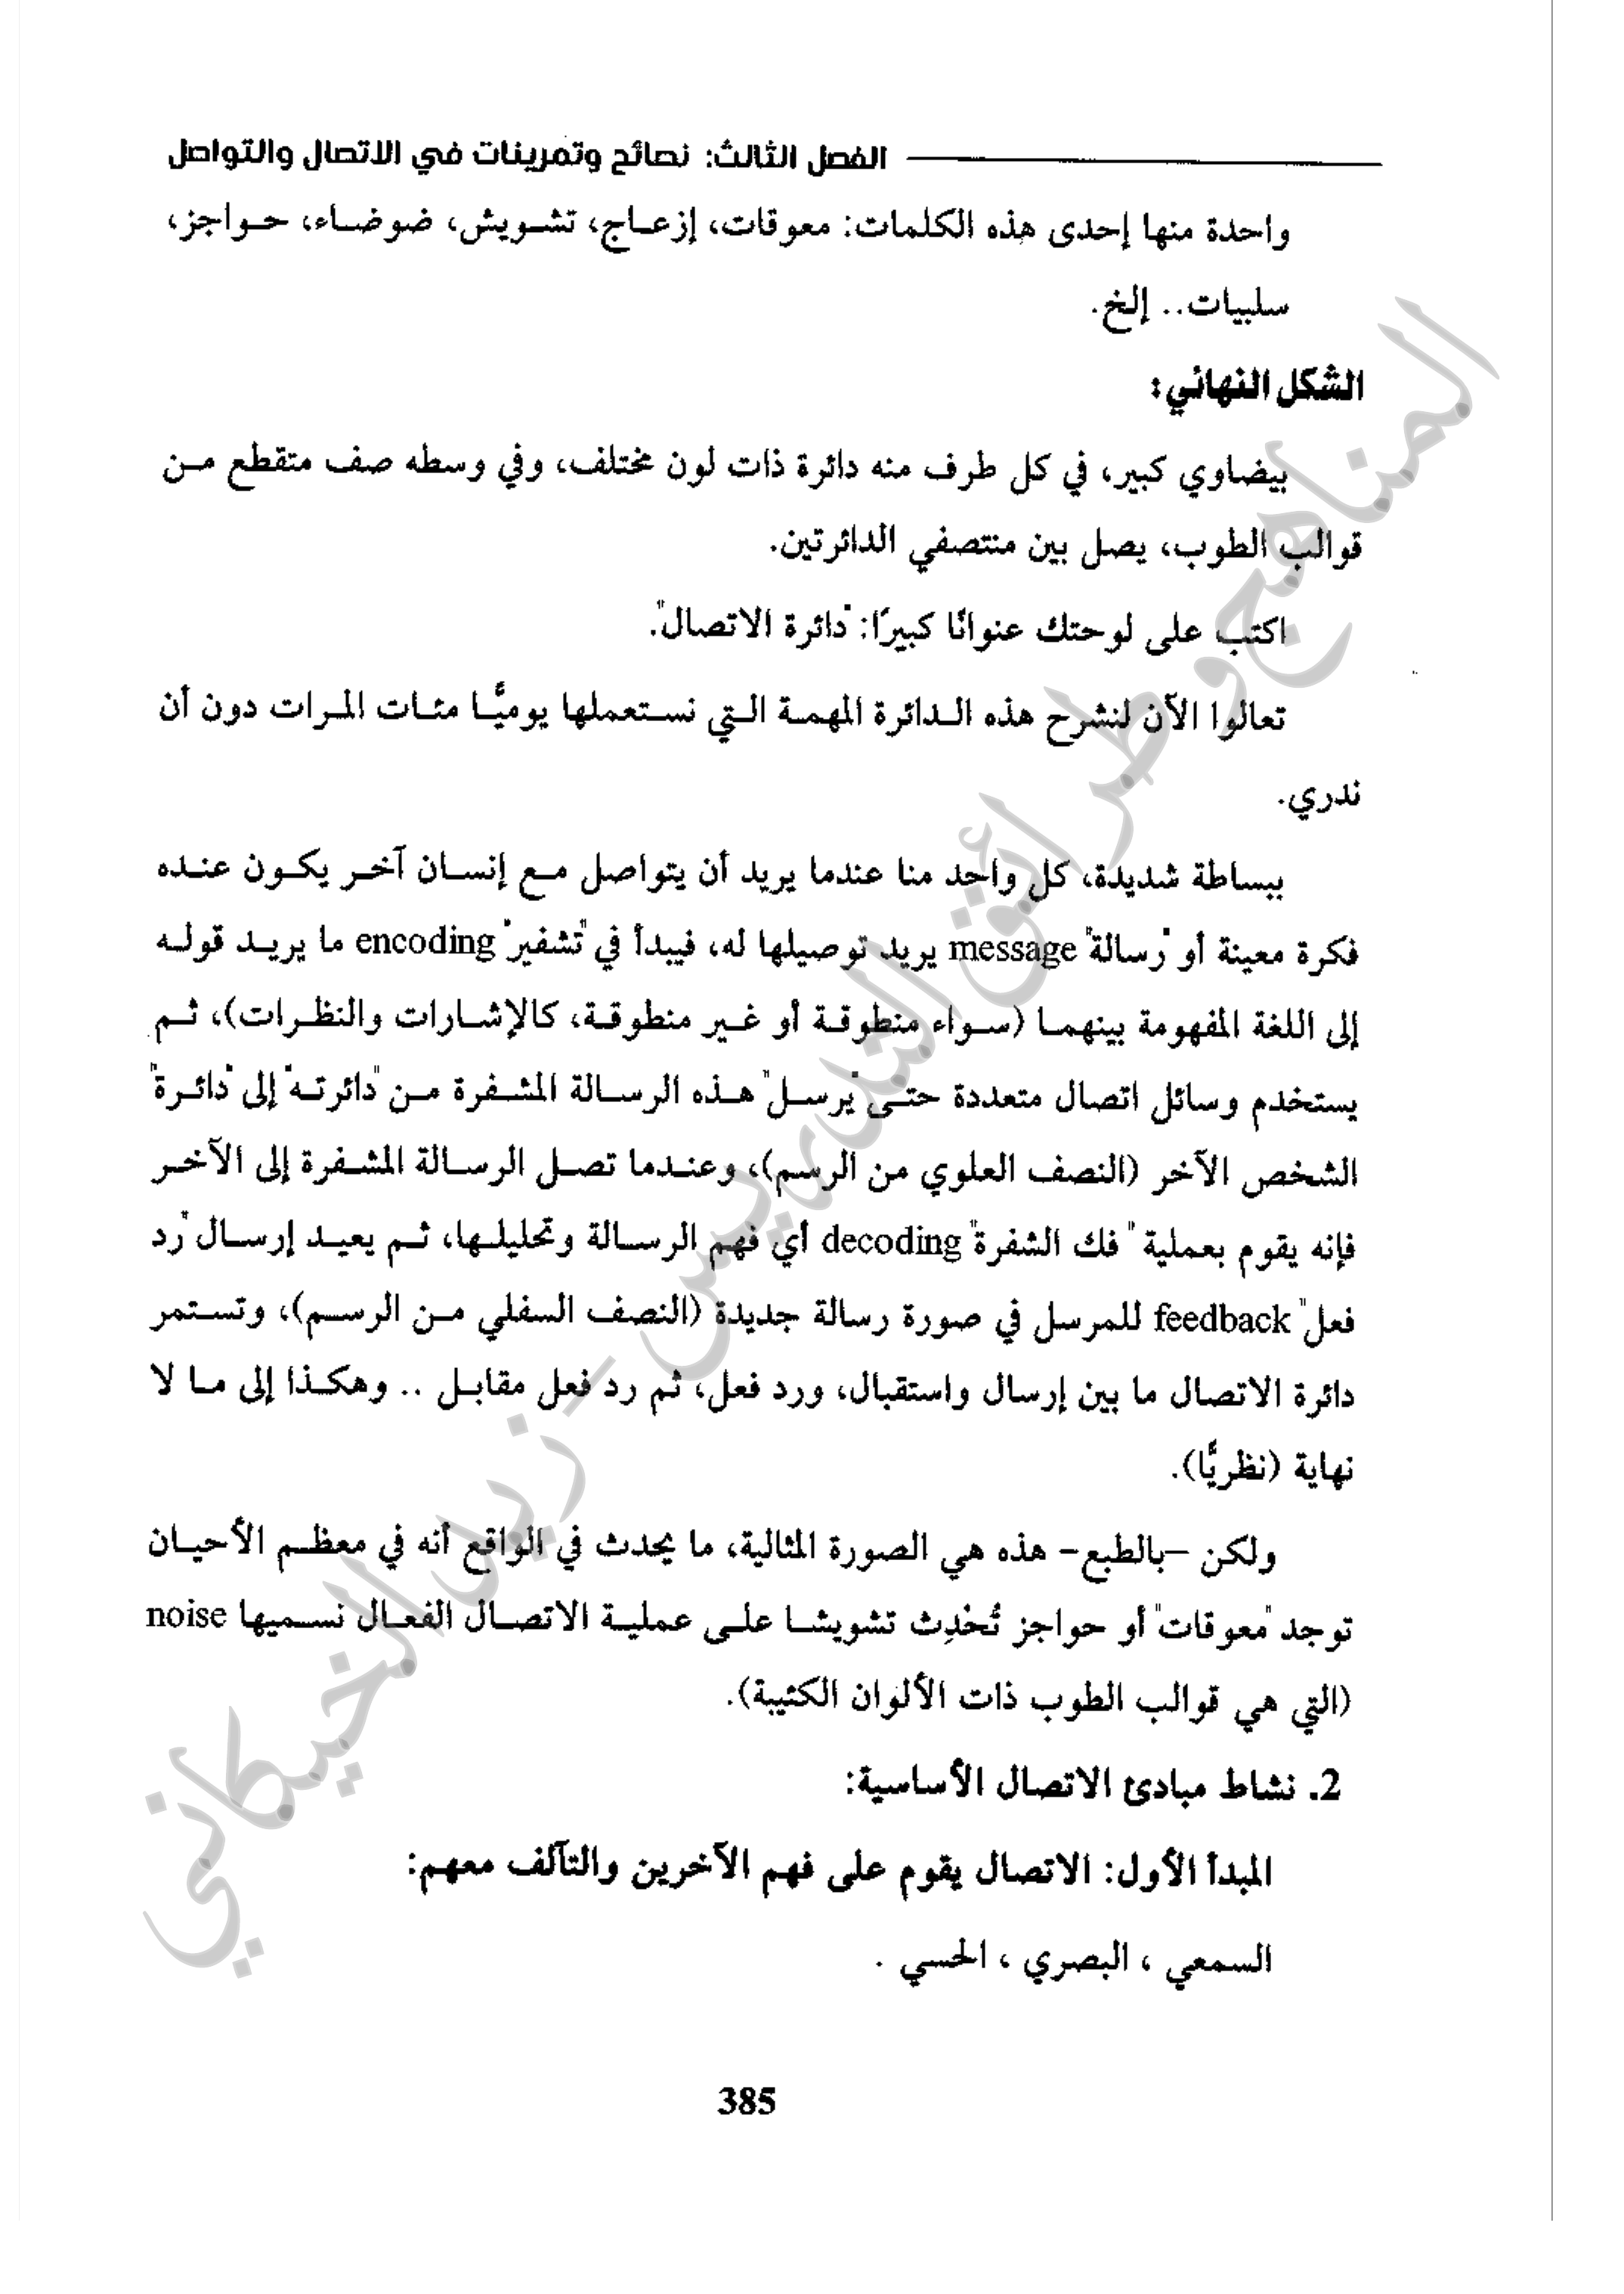 الفصل الثالث: نصائح وتمرينات في الاتصال والتواصل
واحدة منها إحدى هذه الكلمات: معوقات، إزعاج، تشويش، ضوضاء، حواجز،
سلبيات.. إلخ.
الشكل النهائي:
بيضاوي كبير، في كل طرف منه دائرة ذات لون مختلف، وفي وسطه صف متقطع من
قوالب الطوب، يصل بين منتصفي الدائرتين.
اكتب على لوحتك عنوانًا كبيرًا: "دائرة الاتصال".
تعالوا الآن لنشرح هذه الدائرة المهمة التي نستعملها يوميًّا مئات المرات دون أن
ندري.
ببساطة شديدة، كل واحد منا عندما يريد أن يتواصل مع إنسان آخر يكون عنده
فكرة معينة أو "رسالة" message يريد توصيلها له، فيبدأ في "تشفير" encoding ما يريد قوله
إلى اللغة المفهومة بينهما (سواء منطوقة أو غير منطوقة، كالإشارات والنظرات)، ثم
يستخدم وسائل اتصال متعددة حتى "يرسل" هذه الرسالة المشفرة من "دائرته" إلى "دائرة"
الشخص الآخر (النصف العلوي من الرسم)، وعندما تصل الرسالة المشفرة إلى الآخر
فإنه يقوم بعملية " فك الشفرة" decoding أي فهم الرسالة وتحليلها، ثم يعيد إرسال "رد
فعل" feedback للمرسل في صورة رسالة جديدة (النصف السفلي من الرسم)، وتستمر
دائرة الاتصال ما بين إرسال واستقبال، ورد فعل، ثم رد فعل مقابل .. وهكذا إلى ما لا
نهاية (نظريًّا).
ولكن –بالطبع- هذه هي الصورة المثالية، ما يحدث في الواقع أنه في معظم الأحيان
توجد "معوقات" أو حواجز تُحْدِث تشويشا على عملية الاتصال الفعال نسميها noise
(التي هي قوالب الطوب ذات الألوان الكئيبة).
2. نشاط مبادئ الاتصال الأساسية:
المبدأ الأول: الاتصال يقوم على فهم الآخرين والتآلف معهم:
السمعي ، البصري ، الحسي .
385
المناهج وطرائق التدريس - زيد الخيكاني